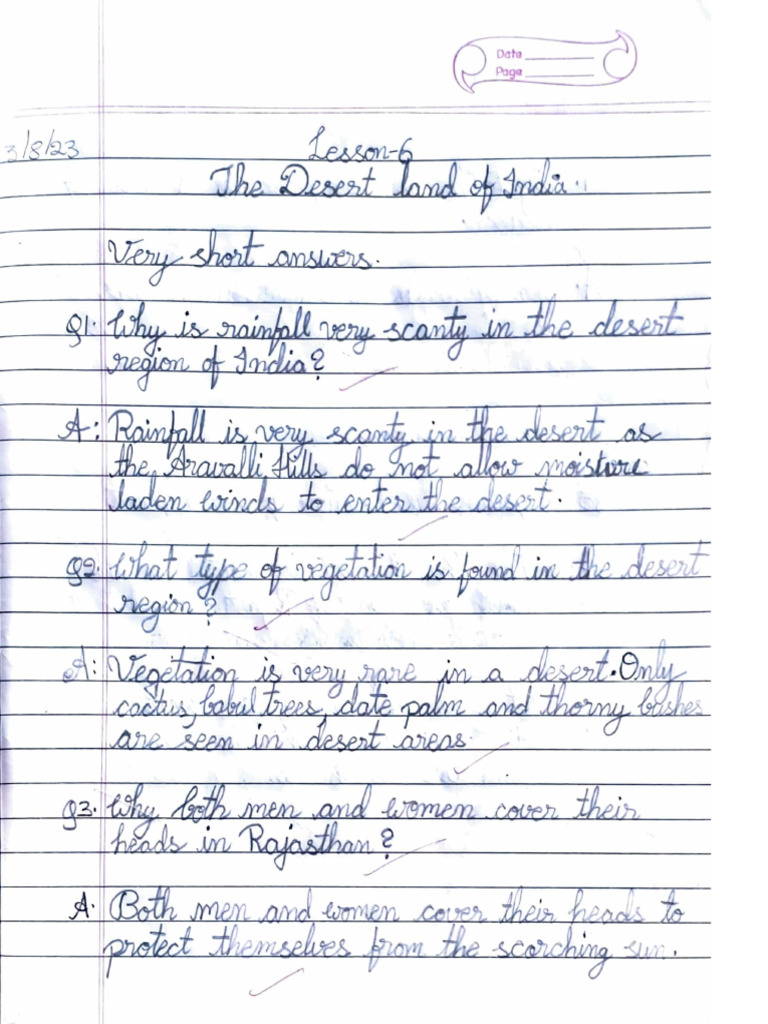 Date
Page
3/8/23
Lesson-6
The Desert land of India.
Very short answers.
Q1. Why is rainfall very scanty in the desert
region of India?
A: Rainfall is very scanty in the desert as
the Aravalli Hills do not allow moisture
laden winds to enter the desert.
Q2. What type of vegetation is found in the desert
region?
A: Vegetation is very rare in a desert. Only
cactus, babul trees, date palm and thorny bushes
are seen in desert areas.
Q3. Why both men and women cover their
heads in Rajasthan?
A. Both men and women cover their heads to
protect themselves from the scorching sun.